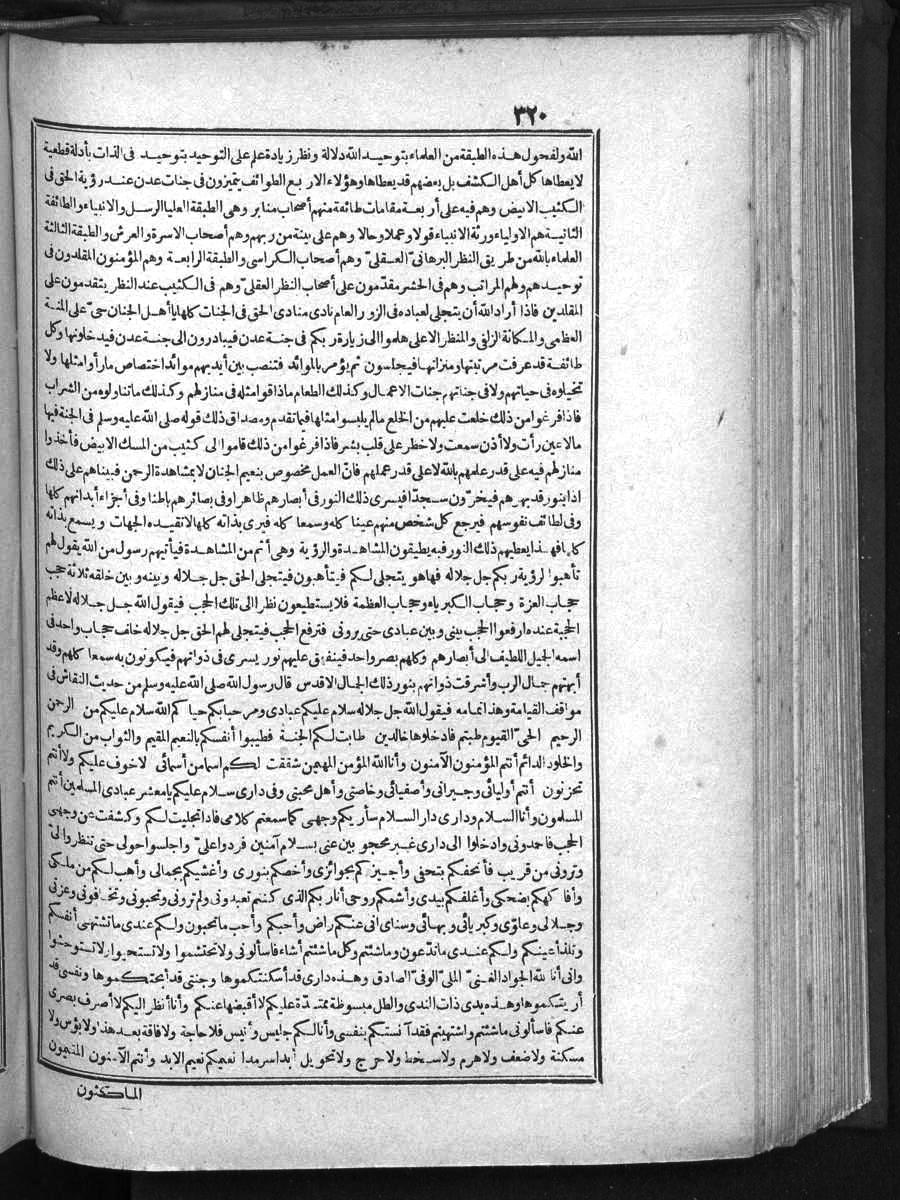 ٣٢٠
الله ولفحول هذه الطبقة من العلماء بتوحيد الله دلالة ونظر زيادة علم على التوحيد بتوحيد فى الذات بأدلة قطعية
لا يعطاها كل أهل الكشف بل بعضهم قد يعطاها وهؤلاء الاربع الطوائف يتميزون فى جنات عدن عند رؤية الحق فى
الكثيب الابيض وهم فيه على أربعة مقامات طائفة منهم أصحاب منابر وهى الطبقة العليا الرسل والانبياء والطائفة
الثانية هم الاولياء ورثة الانبياء قولا وعملا وحالا وهم على بينة من ربهم وهم أصحاب الاسرة والعرش والطبقة الثالثة
العلماء بالله من طريق النظر البرهانىّ العقلىّ وهم أصحاب الكراسى والطبقة الرابعة وهم المؤمنون المقلدون فى
توحيدهم ولهم المراتب وهم فى الحشر مقدّمون على أصحاب النظر العقلىّ وهم فى الكثيب عند النظر يتقدمون على
المقلدين فاذا أراد الله أن يتجلى لعباده فى الزور العام نادى منادى الحق فى الجنات كلها يا أهل الجنان حىّ على المنة
العظمى والمكانة الزلفى والمنظر الاعلى هلموا الى زيارة ربكم فى جنة عدن فيبادرون الى جنة عدن فيدخلونها وكل
طائفة قد عرفت مرتبتها ومنزلتها فيجلسون ثم يؤمر بالموائد فتنصب بين أيديهم موائد اختصاص مارأوا مثلها ولا
تخيلوه فى حياتهم ولا فى جناتهم جنات الاعمال وكذلك الطعام ماذاقوا مثله فى منازلهم وكذلك ماتناولوه من الشراب
فاذا فرغوا من ذلك خلعت عليهم من الخلع مالم يلبسوا مثلها فيما تقدم ومصداق ذلك قوله صلى الله عليه وسلم فى الجنة فيها
مالاعين رأت ولا أذن سمعت ولا خطر على قلب بشر فاذا فرغوا من ذلك قاموا الى كثيب من المسك الابيض فأخذوا
منازلهم فيه على قدر علمهم بالله لا على قدر عملهم فانّ العمل مخصوص بنعيم الجنان لا بمشاهدة الرحمن فبيناهم على ذلك
اذا بنور قد بهرهم فيخرّون سجدا فيسرى ذلك النور فى أبصارهم ظاهرا وفى بصائرهم باطنا وفى أجزاء أبدانهم كلها
وفى لطائف نفوسهم فيرجع كل شخص منهم عينا كله وسمعا كله فيرى بذاته كلها لا تقيده الجهات ويسمع بذاته
كلها فهذا يعطيهم ذلك النور فبه يطيقون المشاهدة والرؤية وهى أتم من المشاهدة فيأتيهم رسول من الله يقول لهم
تأهبوا لرؤية ربكم جل جلاله فها هو يتجلى لكم فيتأهبون فيتجلى الحق جل جلاله وبينه وبين خلقه ثلاثة حجب
حجاب العزة وحجاب الكبرياء وحجاب العظمة فلا يستطيعون نظرا الى تلك الحجب فيقول الله جل جلاله لاعظم
الحجبة عنده ارفعوا الحجب بينى وبين عبادى حتى يرونى فترفع الحجب فيتجلى لهم الحق جل جلاله خلف حجاب واحد فى
اسمه الجميل اللطيف الى أبصارهم وكلهم بصر واحد فينفهق عليهم نور يسرى فى ذواتهم فيكونون به سمعا كلهم وقد
أبهتهم جمال الرب وأشرقت ذواتهم بنور ذلك الجمال الاقدس قال رسول الله صلى الله عليه وسلم من حديث النقاش فى
مواقف القيامة وهذا تمامه فيقول الله جل جلاله سلام عليكم عبادى ومرحبا بكم حياكم الله سلام عليكم من الرحمن
الرحيم الحىّ القيوم طبتم فادخلوها خالدين طابت لكم الجنة فطيبوا أنفسكم بالنعيم المقيم والثواب من الكريم
والخلود الدائم أنتم المؤمنون الآمنون وأنا الله المؤمن المهيمن شققت لكم اسما من أسمائى لاخوف عليكم ولا أنتم
تحزنون أنتم أوليائى وجيرانى وأصفيائى وخاصتى وأهل محبتى وفى دارى سلام عليكم يا معشر عبادى المسلمين أنتم
المسلمون وأنا السلام ودارى دار السلام سأريكم وجهى كما سمعتم كلامى فاذا تجليت لكم وكشفت عن وجهى
الحجب فاحمدونى وادخلوا الى دارى غير محجوبين عنى بسلام آمنين فردوا علىّ واجلسوا حولى حتى تنظروا الىّ
وترونى من قريب فأتحفكم بتحفى وأجيزكم بجوائزى وأخصكم بنورى وأغشيكم بجمالى وأهب لكم من ملكى
وأفاكهكم بضحكى وأغلفكم بيدى وأشمكم روحى أنا ربكم الذى كنتم تعبدونى ولم ترونى وتحبونى وتخافونى وعزتى
وجلالى وعلوّى وكبريائى وبهائى وسنائى انى عنكم راض وأحبكم وأحب ماتحبون ولكم عندى ماتشتهى أنفسكم
وتلذ أعينكم ولكم عندى ماتدّعون وماشئتم وكل ماشئتم أشاء فاسألونى ولا تحتشموا ولا تستحيوا ولا تستوحشوا
وانى أنا الله الجواد الغنىّ الملىّ الوفىّ الصادق وهذه دارى قد أسكنتكموها وجنتى قد أبحتكموها ونفسى قد
أريتكموها وهذه يدى ذات الندى والطل مبسوطة ممتدّة عليكم لا أقبضها عنكم وأنا أنظر اليكم لا أصرف بصرى
عنكم فاسألونى ماشئتم واشتهيتم فقد آنستكم بنفسى وأنا لكم جليس وأنيس فلا حاجة ولا فاقة بعد هذا ولا بؤس ولا
مسكنة ولا ضعف ولا هرم ولا سخط ولا حرج ولا تحويل أبدا سرمدا نعيمكم نعيم الابد وأنتم الآمنون المقيمون
الماكثون